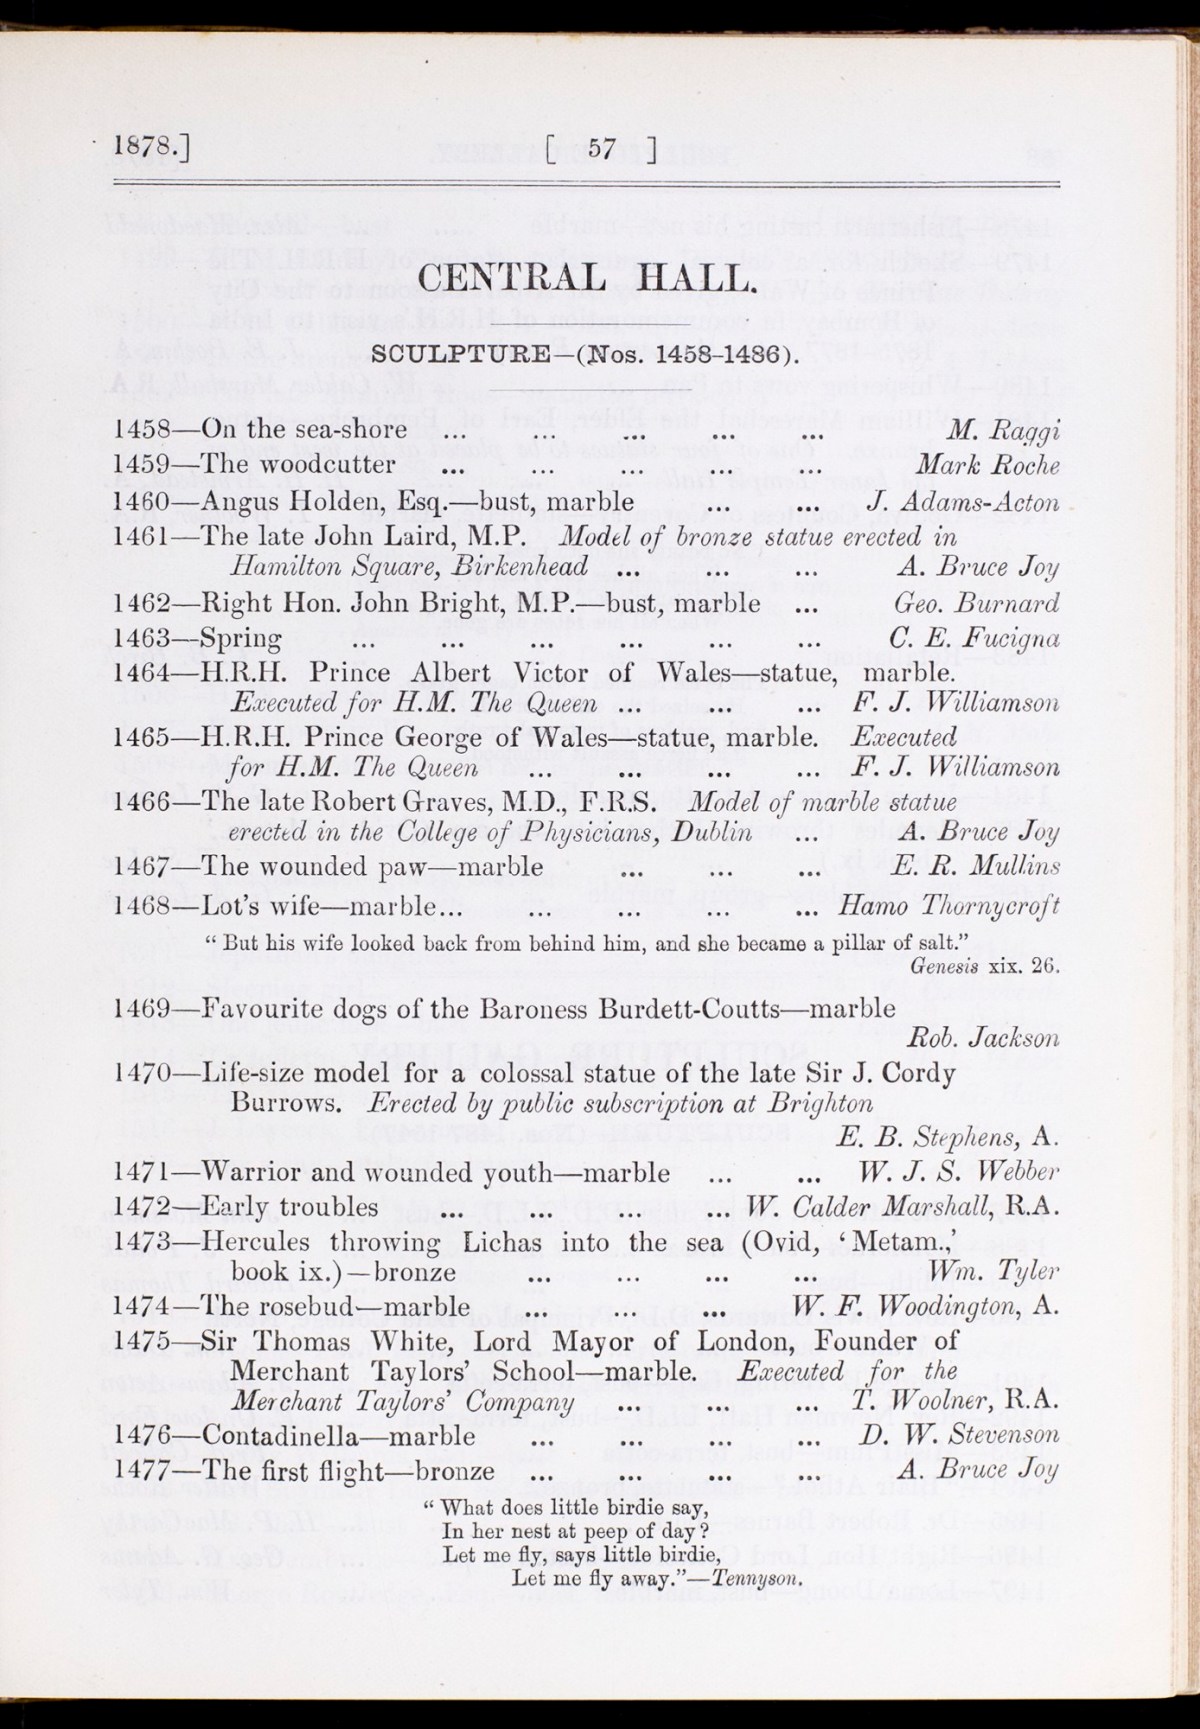 1878.] [ 57 ]
CENTRAL HALL.
SCULPTURE—(Nos. 1458-1486).
1458—On the sea-shore ... ... ... ... ... M. Raggi
1459—The woodcutter ... ... ... ... ... Mark Roche
1460—Angus Holden, Esq.—bust, marble ... ... J. Adams-Acton
1461—The late John Laird, M.P. Model of bronze statue erected in
Hamilton Square, Birkenhead ... ... ... A. Bruce Joy
1462—Right Hon. John Bright, M.P.—bust, marble ... Geo. Burnard
1463—Spring ... ... ... ... ... ... C. E. Fucigna
1464—H.R.H. Prince Albert Victor of Wales—statue, marble.
Executed for H.M. The Queen ... ... ... F. J. Williamson
1465—H.R.H. Prince George of Wales—statue, marble. Executed
for H.M. The Queen ... ... ... ... F. J. Williamson
1466—The late Robert Graves, M.D., F.R.S. Model of marble statue
erected in the College of Physicians, Dublin ... A. Bruce Joy
1467—The wounded paw—marble ... ... ... E. R. Mullins
1468—Lot's wife—marble... ... ... ... ... Hamo Thornycroft
“ But his wife looked back from behind him, and she became a pillar of salt.”
Genesis xix. 26.
1469—Favourite dogs of the Baroness Burdett-Coutts—marble
Rob. Jackson
1470—Life-size model for a colossal statue of the late Sir J. Cordy
Burrows. Erected by public subscription at Brighton
E. B. Stephens, A.
1471—Warrior and wounded youth—marble ... ... W. J. S. Webber
1472—Early troubles ... ... ... ... W. Calder Marshall, R.A.
1473—Hercules throwing Lichas into the sea (Ovid, ‘Metam.,’
book ix.)—bronze ... ... ... ... Wm. Tyler
1474—The rosebud—marble ... ... ... W. F. Woodington, A.
1475—Sir Thomas White, Lord Mayor of London, Founder of
Merchant Taylors' School—marble. Executed for the
Merchant Taylors' Company ... ... ... T. Woolner, R.A.
1476—Contadinella—marble ... ... ... ... D. W. Stevenson
1477—The first flight—bronze ... ... ... ... A. Bruce Joy
“ What does little birdie say,
In her nest at peep of day?
Let me fly, says little birdie,
Let me fly away.”—Tennyson.